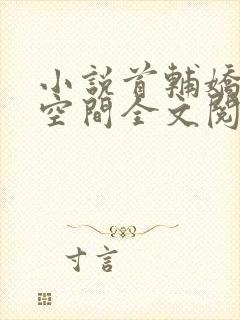 小說首輔嬌
空間全文閱
寸言